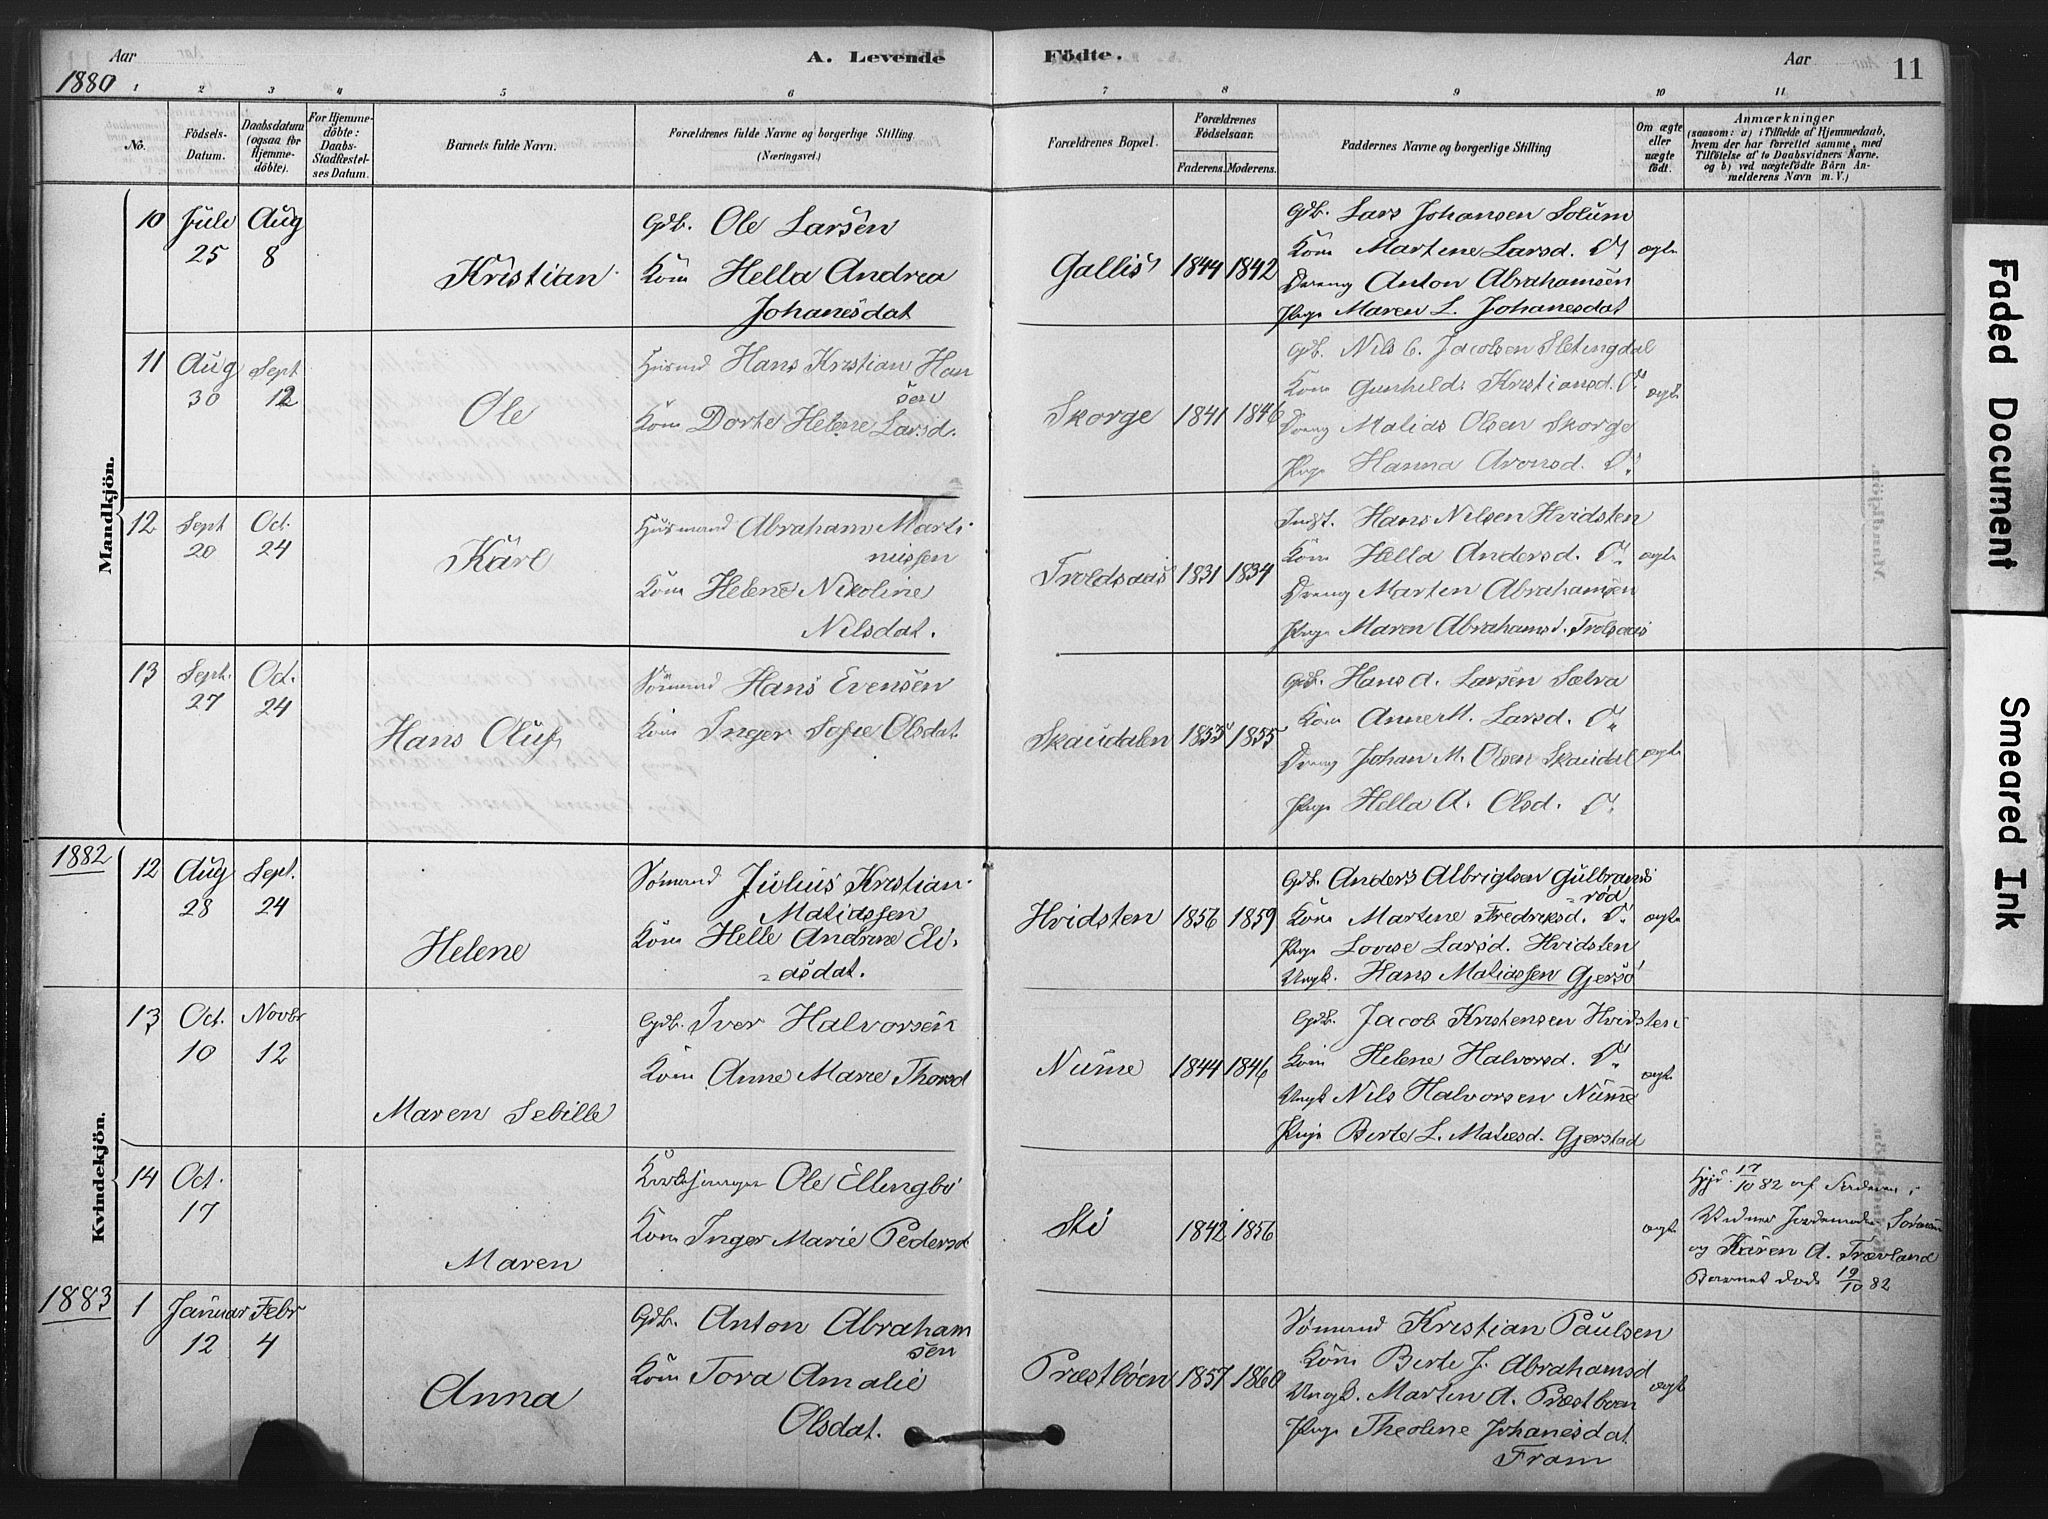 Aar
1880
A. Levende
Födte.
Aar
11
1 2 3 4 5 6 7 8 9 10 11
No.
Födsels-Datum.
Daabsdatum (ogsaa for Hjemmedöbte).
For Hjemmedöbte: Daabs-Stadfæstelses Datum.
Barnets fulde Navn.
Forældrenes fulde Navne og borgerlige Stilling. (Næringsvei.)
Forældrenes Bopæl.
Forældrenes Födselsaar.
Faderens. Moderens.
Faddernes Navne og borgerlige Stilling
Om ægte eller uægte födt.
Anmærkninger
(saasom: a) i Tilfælde af Hjemmedaab, hvem der har forrettet samme, med Tilföielse af to Daabsvidners Navne, og b) ved uægtefödte Börn Anmelderens Navn m. V.)
Mandkjön.
10 Juli 25 Aug 8
Kristian
Gdb. Ole Larsen
Kon Hella Andrea
Johanesdat
Gallis 1844 1842
Gdb. Lars Johansen Solum
Kon Martine Larsd. D
Dreng Anton Abrahamsen
Pige Maren L. Johanesdat
ægte
11 Aug 30 Sept 12
Ole
Husmd Hans Kristian Han
sen
Kon Dorte Helene Larsd.
Skorge 1841 1846
Gdb. Nils C. Jacobsen Sletingdal
Kon Gunhild Kristiansd. D
Dreng Matias Olsen Skorge
Pige Hanna Aronsd. D
ægte
12 Sept 20 Oct. 24
Karl
Husmand Abraham Marti
nussen
Kon Helene Nikoline
Nilsdat.
Troldsaas 1831 1834
Indst. Hans Nilsen Hvidsten
Kon Hella Andersd. D
Dreng Marten Abrahamsen
Pige Maren Abrahamsd. Trolsaas
ægte
13 Sept. 27 Oct. 24
Hans Oluf
Sømand Hans Evensen
Kon Inger Sofie Olsdat.
Skaudalen 1855 1855
Gdb. Hans A. Larsen Sælva
Kon Anne M. Larsd. D
Dreng Johan M. Olsen Skaudal
Pige Hella A. Olsd. D
ægte
1882
Kvindekjön.
12 Aug 28 Sept. 24
Helene
Sømand Julius Kristian
Matiassen
Kon Helle Andrine Eli-
asdat.
Hvidsten 1856 1859
Gdb. Anders Albrigtsen Gulbrands
rød
Kon Martine Fredriksd. D
Pige Lovise Larsd. Hvidsten
Ungk. Hans Matiassen Gjersø
ægte
13 Oct. 10 Novbr 12
Maren Sebille
Gdb. Iver Halvorsen
Kon Anne Marie Thorsd
Nume 1844 1846
Gdb. Jacob Kristensen Hvidsten
Kon Helene Halvorsd. D
Ungk Nils Halvorsen Nume
Pige Berte L. Matiesd. Gjerstad
ægte
14 Oct. 17
Maren
Kirkesanger Ole Ellingbø
Kon Inger Marie Pedersd
Sti 1842 1856
ægte
Hjd. 17/10 82 af Faderen
Vidner Jordemoder
og Karen A. Trævland
Barnet døde 19/10 82
1883
1 Januar 12 Febr 4
Anna
Gdb. Anton Abraham
sen
Kon Tora Amalie
Olsdat.
Præstbøen 1857 1860
Sømand Kristian Paulsen
Kon Berte J. Abrahamsd
Ungk. Marten A. Præstbøen
Pige Theoline Johanesdat
Fram
ægte
Faded Document
Smeared Ink